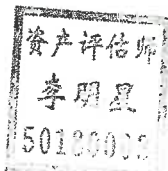 资产评估师
李明星
50180005